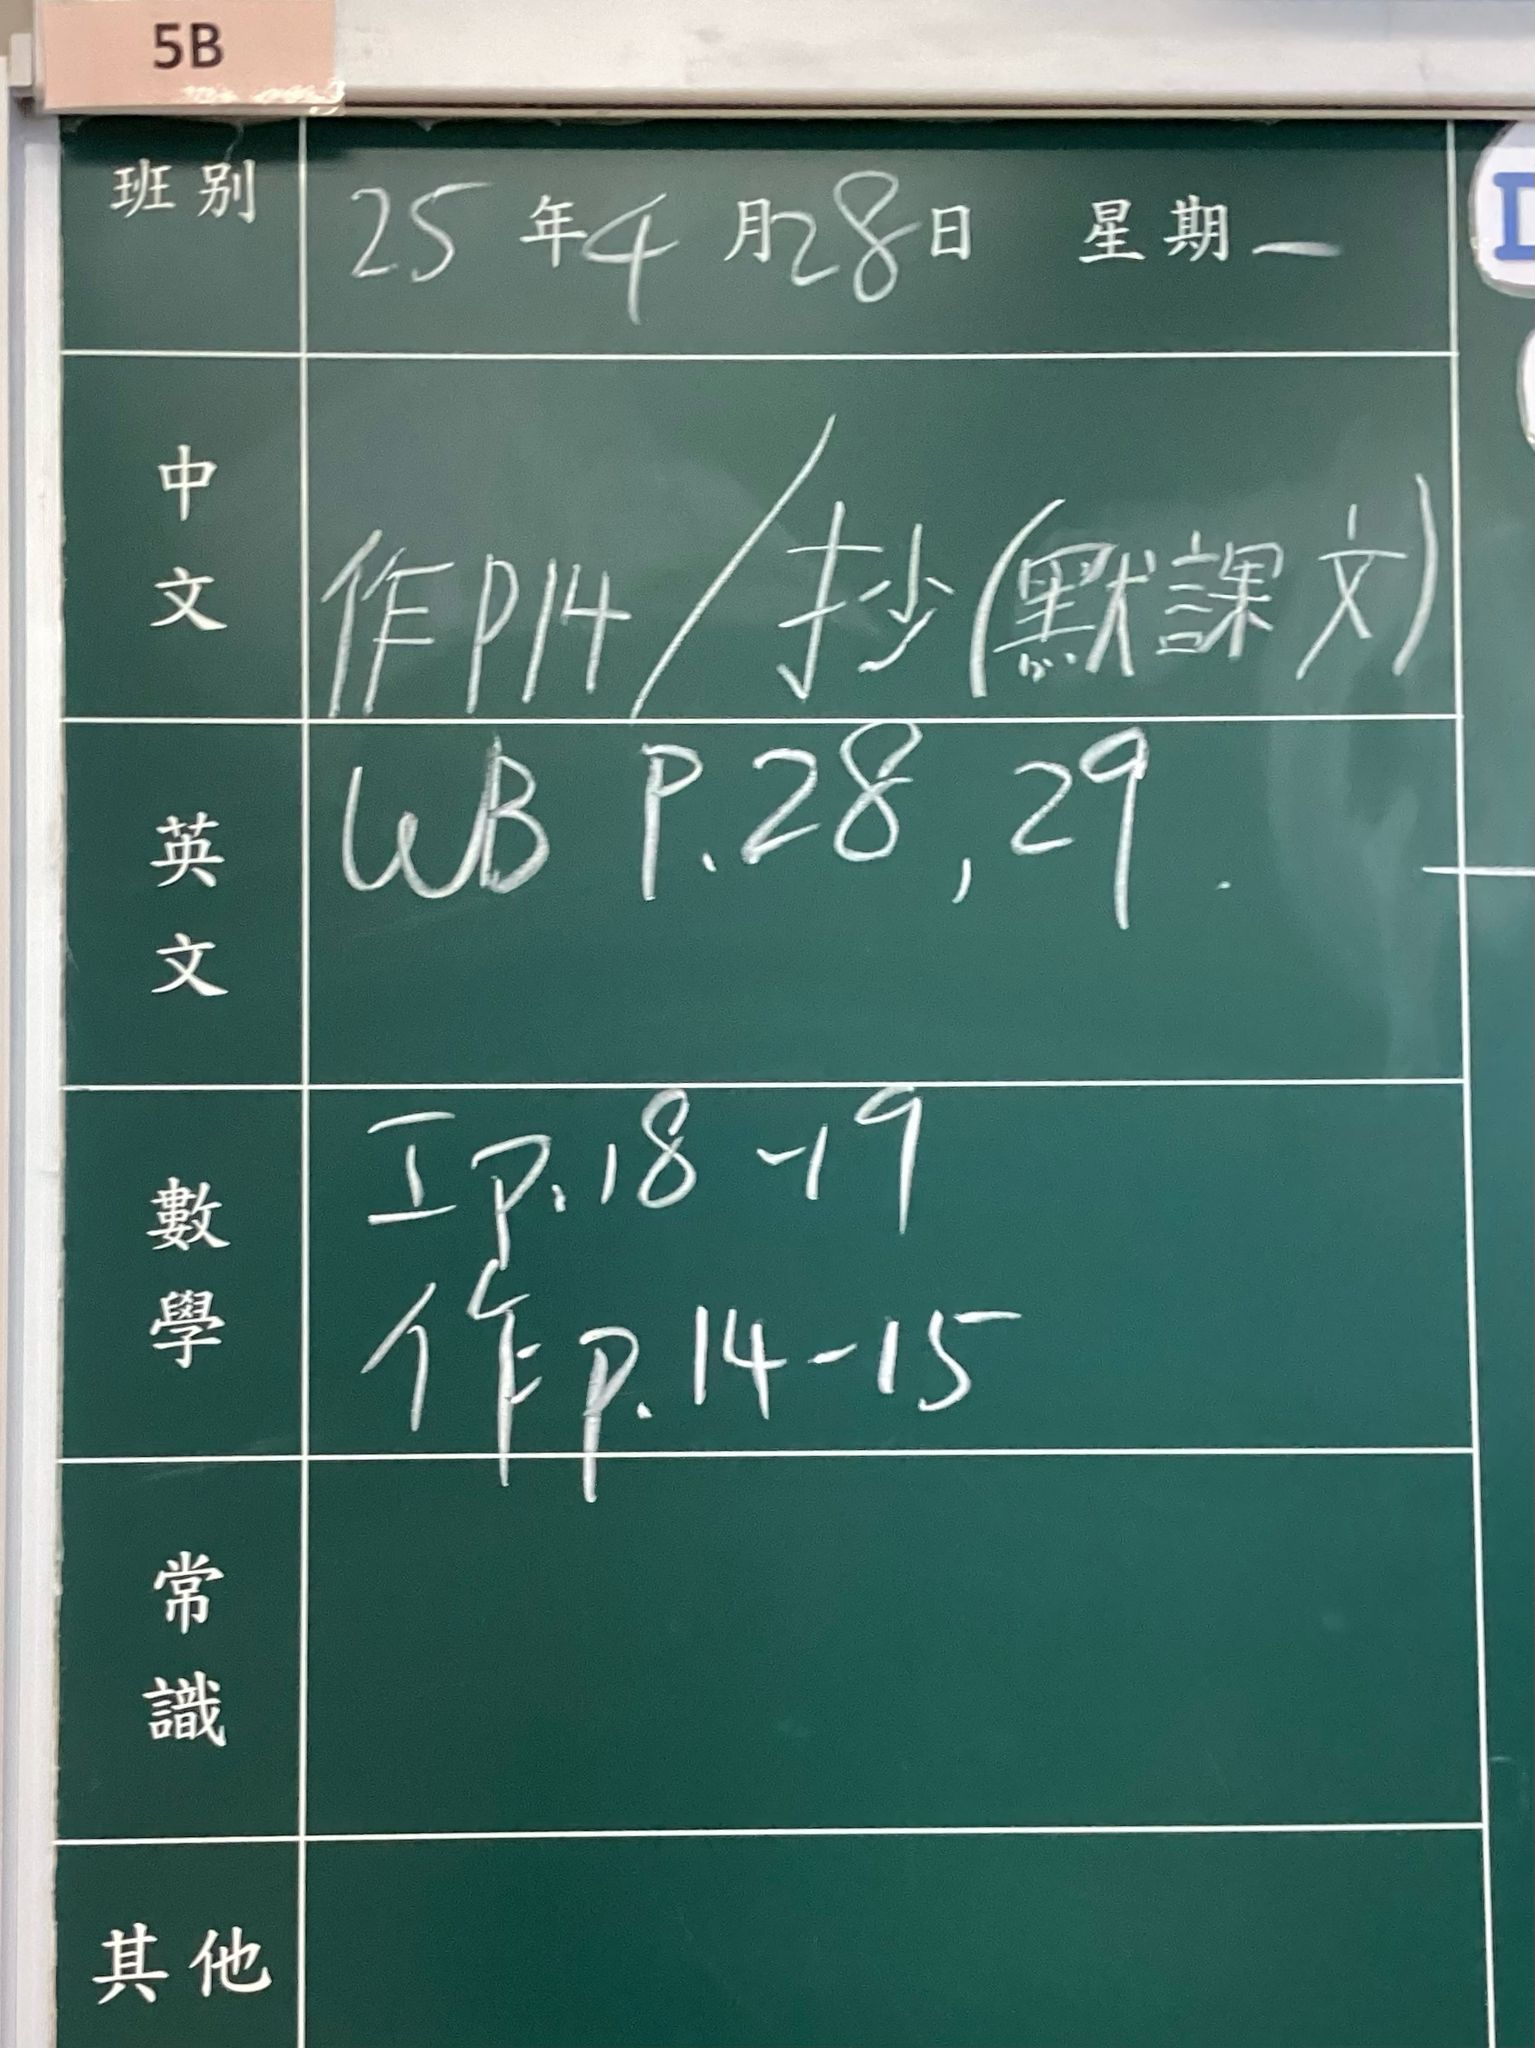 5B
班別 25年4月28日 星期一
中文 作P14/抄(默課文)
英文 WB P.28,29.
數學 工p.18-19
作p.14-15
常識
其他